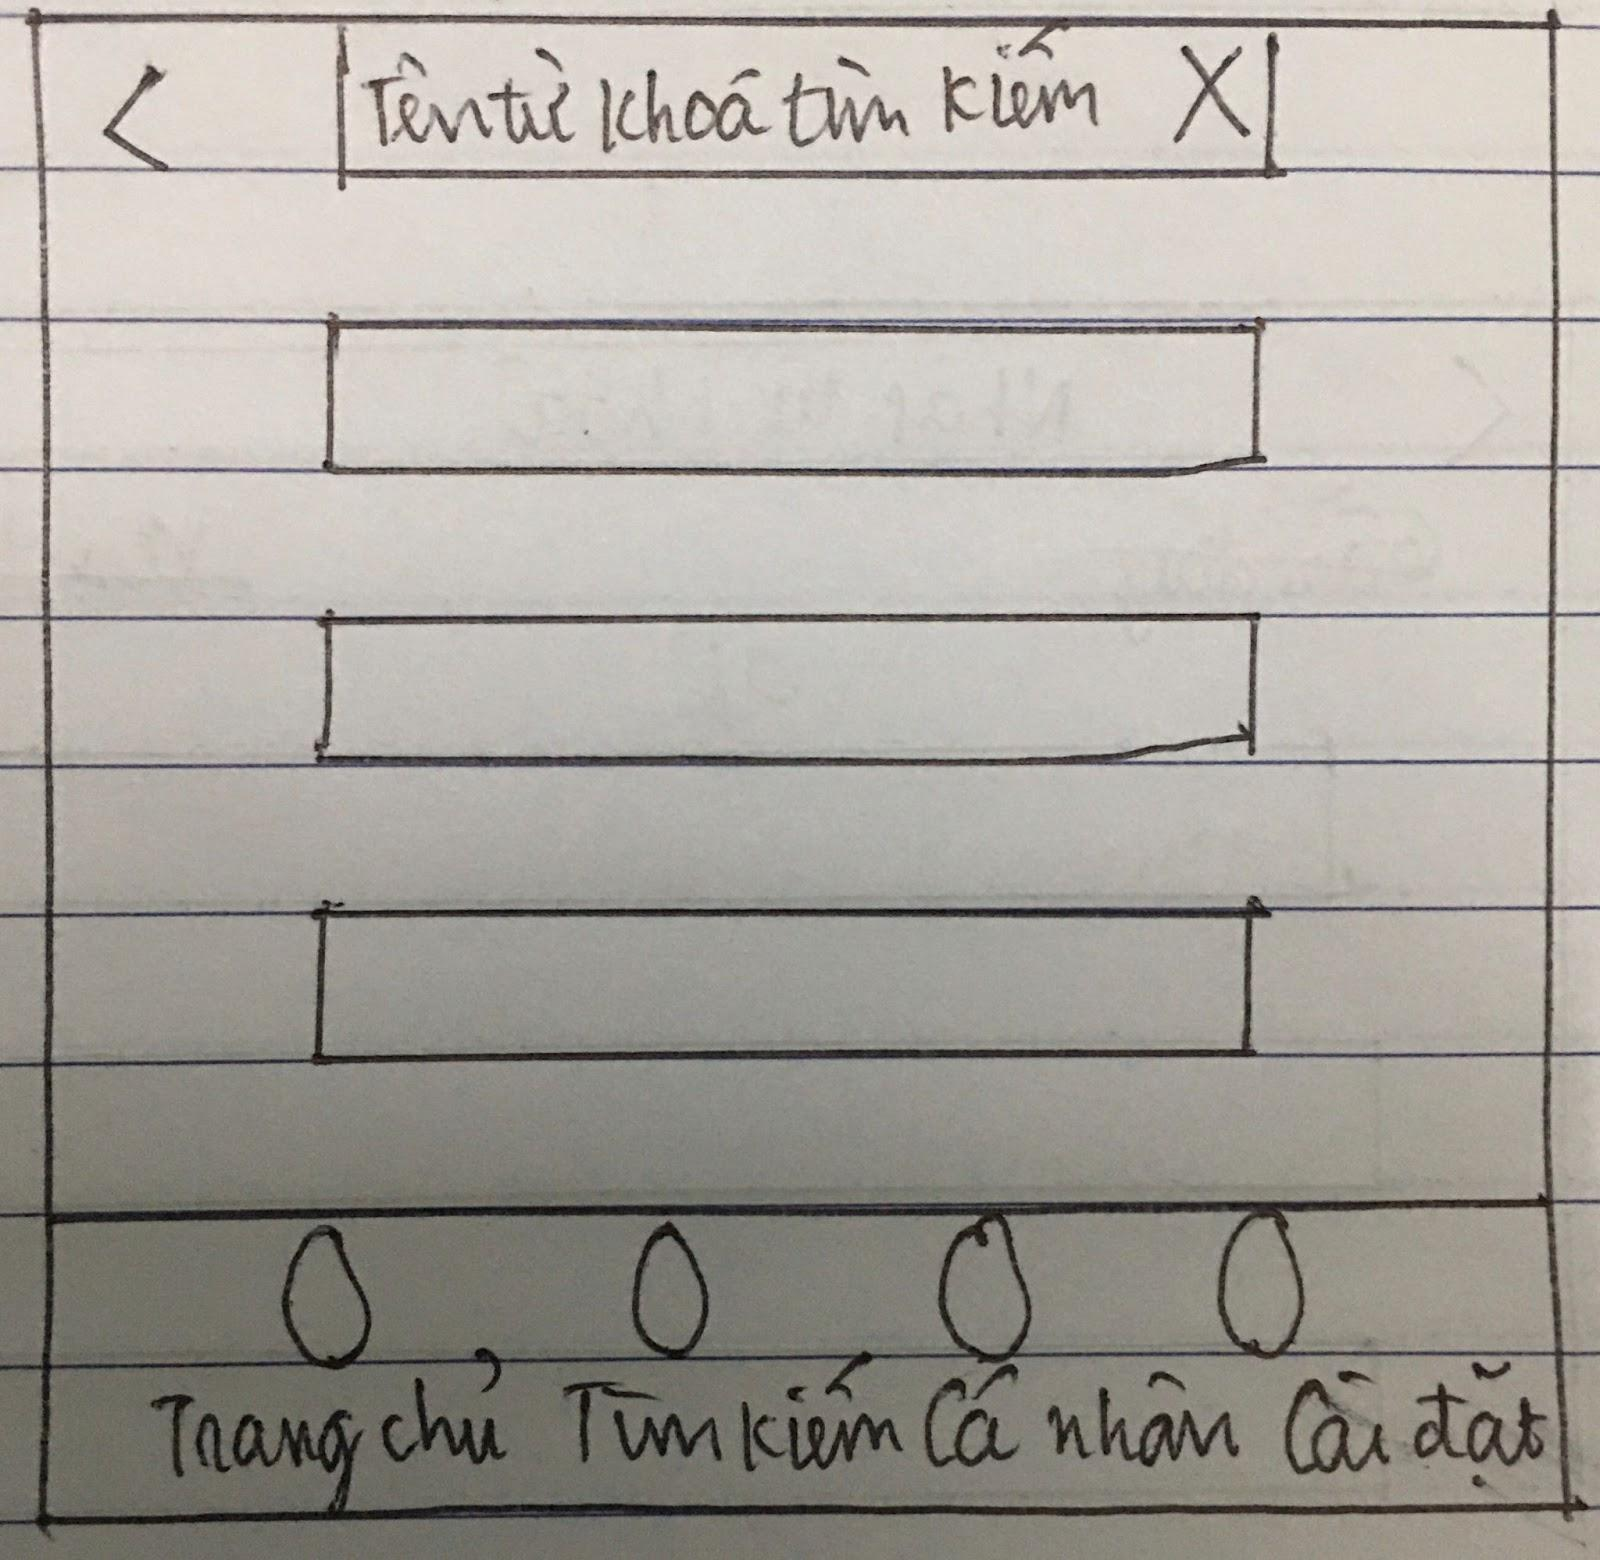 < Tên từ khoá tìm kiếm X
Trang chủ Tìm kiếm Cá nhân Cài đặt